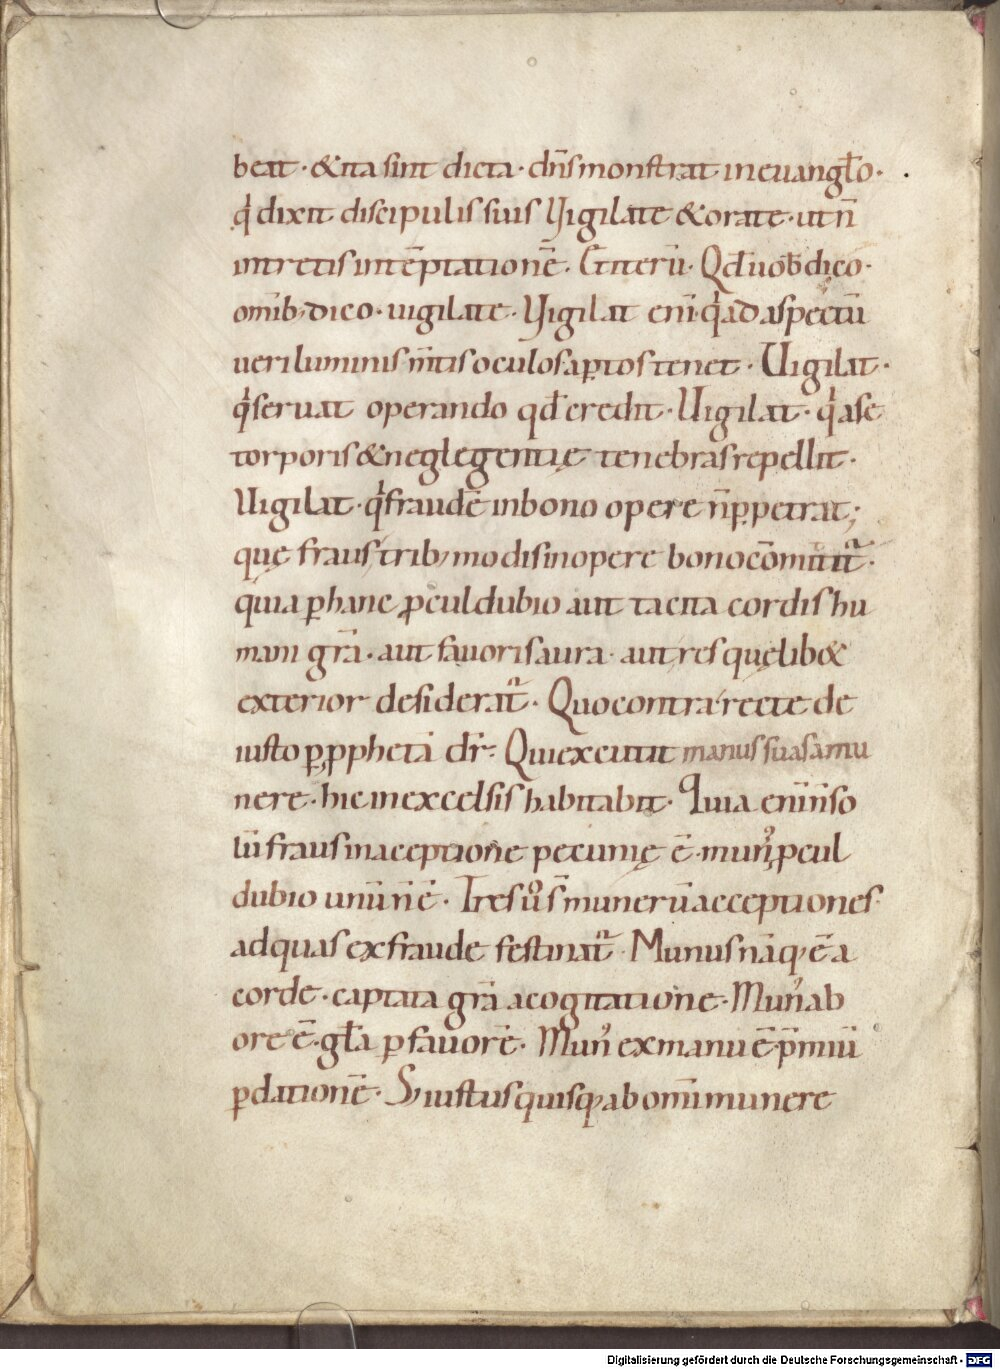 beat · & ita sint dicta · dn̄s monstrat in euangło ·
q' dixit discipulis suis Vigilate & orate · ut n̄
intretis in tēptationē · Et iterū · Qđ uob̄ dico ·
omīb; dico · uigilate · Vigilat eni· q' ad aspectū
ueri luminis m̄tis oculos aꝑtos tenet · Vigilat ·
q' seruat operando qđ credit · Vigilat · q' a se
torporis & neglegentię tenebras repellit ·
Vigilat · q' fraudē in bono opere n̄ ꝑpetrat ;
quę fraus trib; modis in opere bono cōmittit᷑ ·
quia ꝑ hanc ꝓculdubio aut tacita cordis hu
mani grā · aut fauoris aura · aut res quęlib&
exterior desiderat᷑ · Quo contra recte de
iusto ꝑ ꝓphetā dr̄ · Qui excutit manus suas a mu
nere · hic in excelsis habitabit · Quia eni n̄ so
lū fraus in acceptione pecunię ē · mun᷒ ꝓcul
dubio unū n̄ ē · Tres u᷒ s̄ munerū acceptiones
ad quas ex fraude festinat᷑ · Munus nāq; ē a
corde · captata grā a cogitatione · Mun᷒ ab
ore ē · gła ꝑ fauorē · Mun᷒ ex manu ē p̄miū
ꝑ dationē · S; iustus quisq; ab omī munere
Digitalisierung gefördert durch die Deutsche Forschungsgemeinschaft - DFG